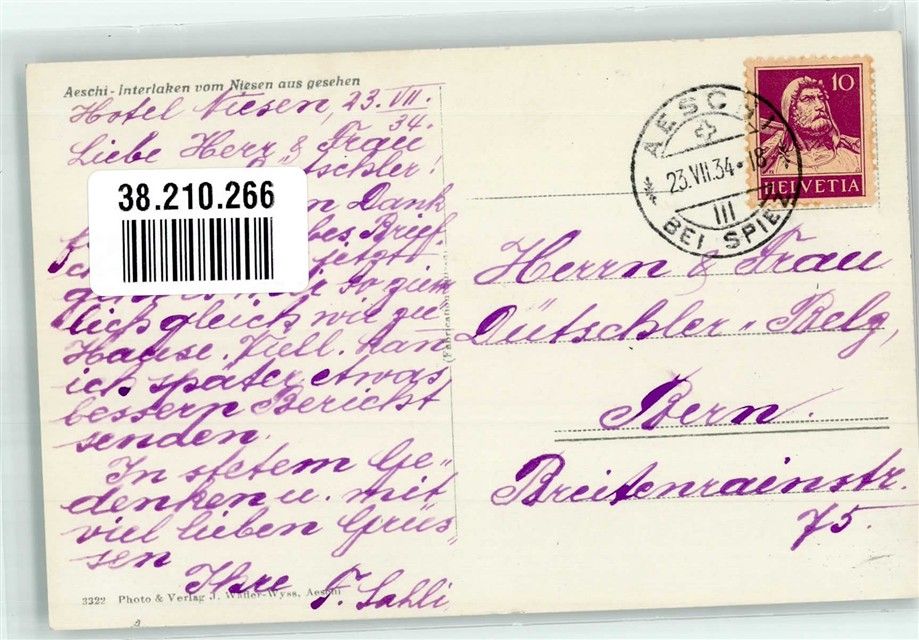 Aeschi - Interlaken vom Niesen aus gesehen
Hotel Niesen, 23. VII.
34.
Liebe Herr & Frau
tschler!
38.210.266
n Dank
bes Brief-
jetzt
so ziem
lich gleich wie zu
Hause. Viell. kan
ich später etwas
bessern Bericht
senden.
In stetem Ge-
denken u. mit
viel lieben Grüs-
sen
Ihre F. Sahli
3322 Photo & Verlag J. Wäfler-Wyss, Aeschi
AESCHI
23.VII.34-18
III
BEI SPIEZ
10
HELVETIA
Herrn & Frau
Dütschler-Belg,
Bern.
Breitenrainstr.
75.